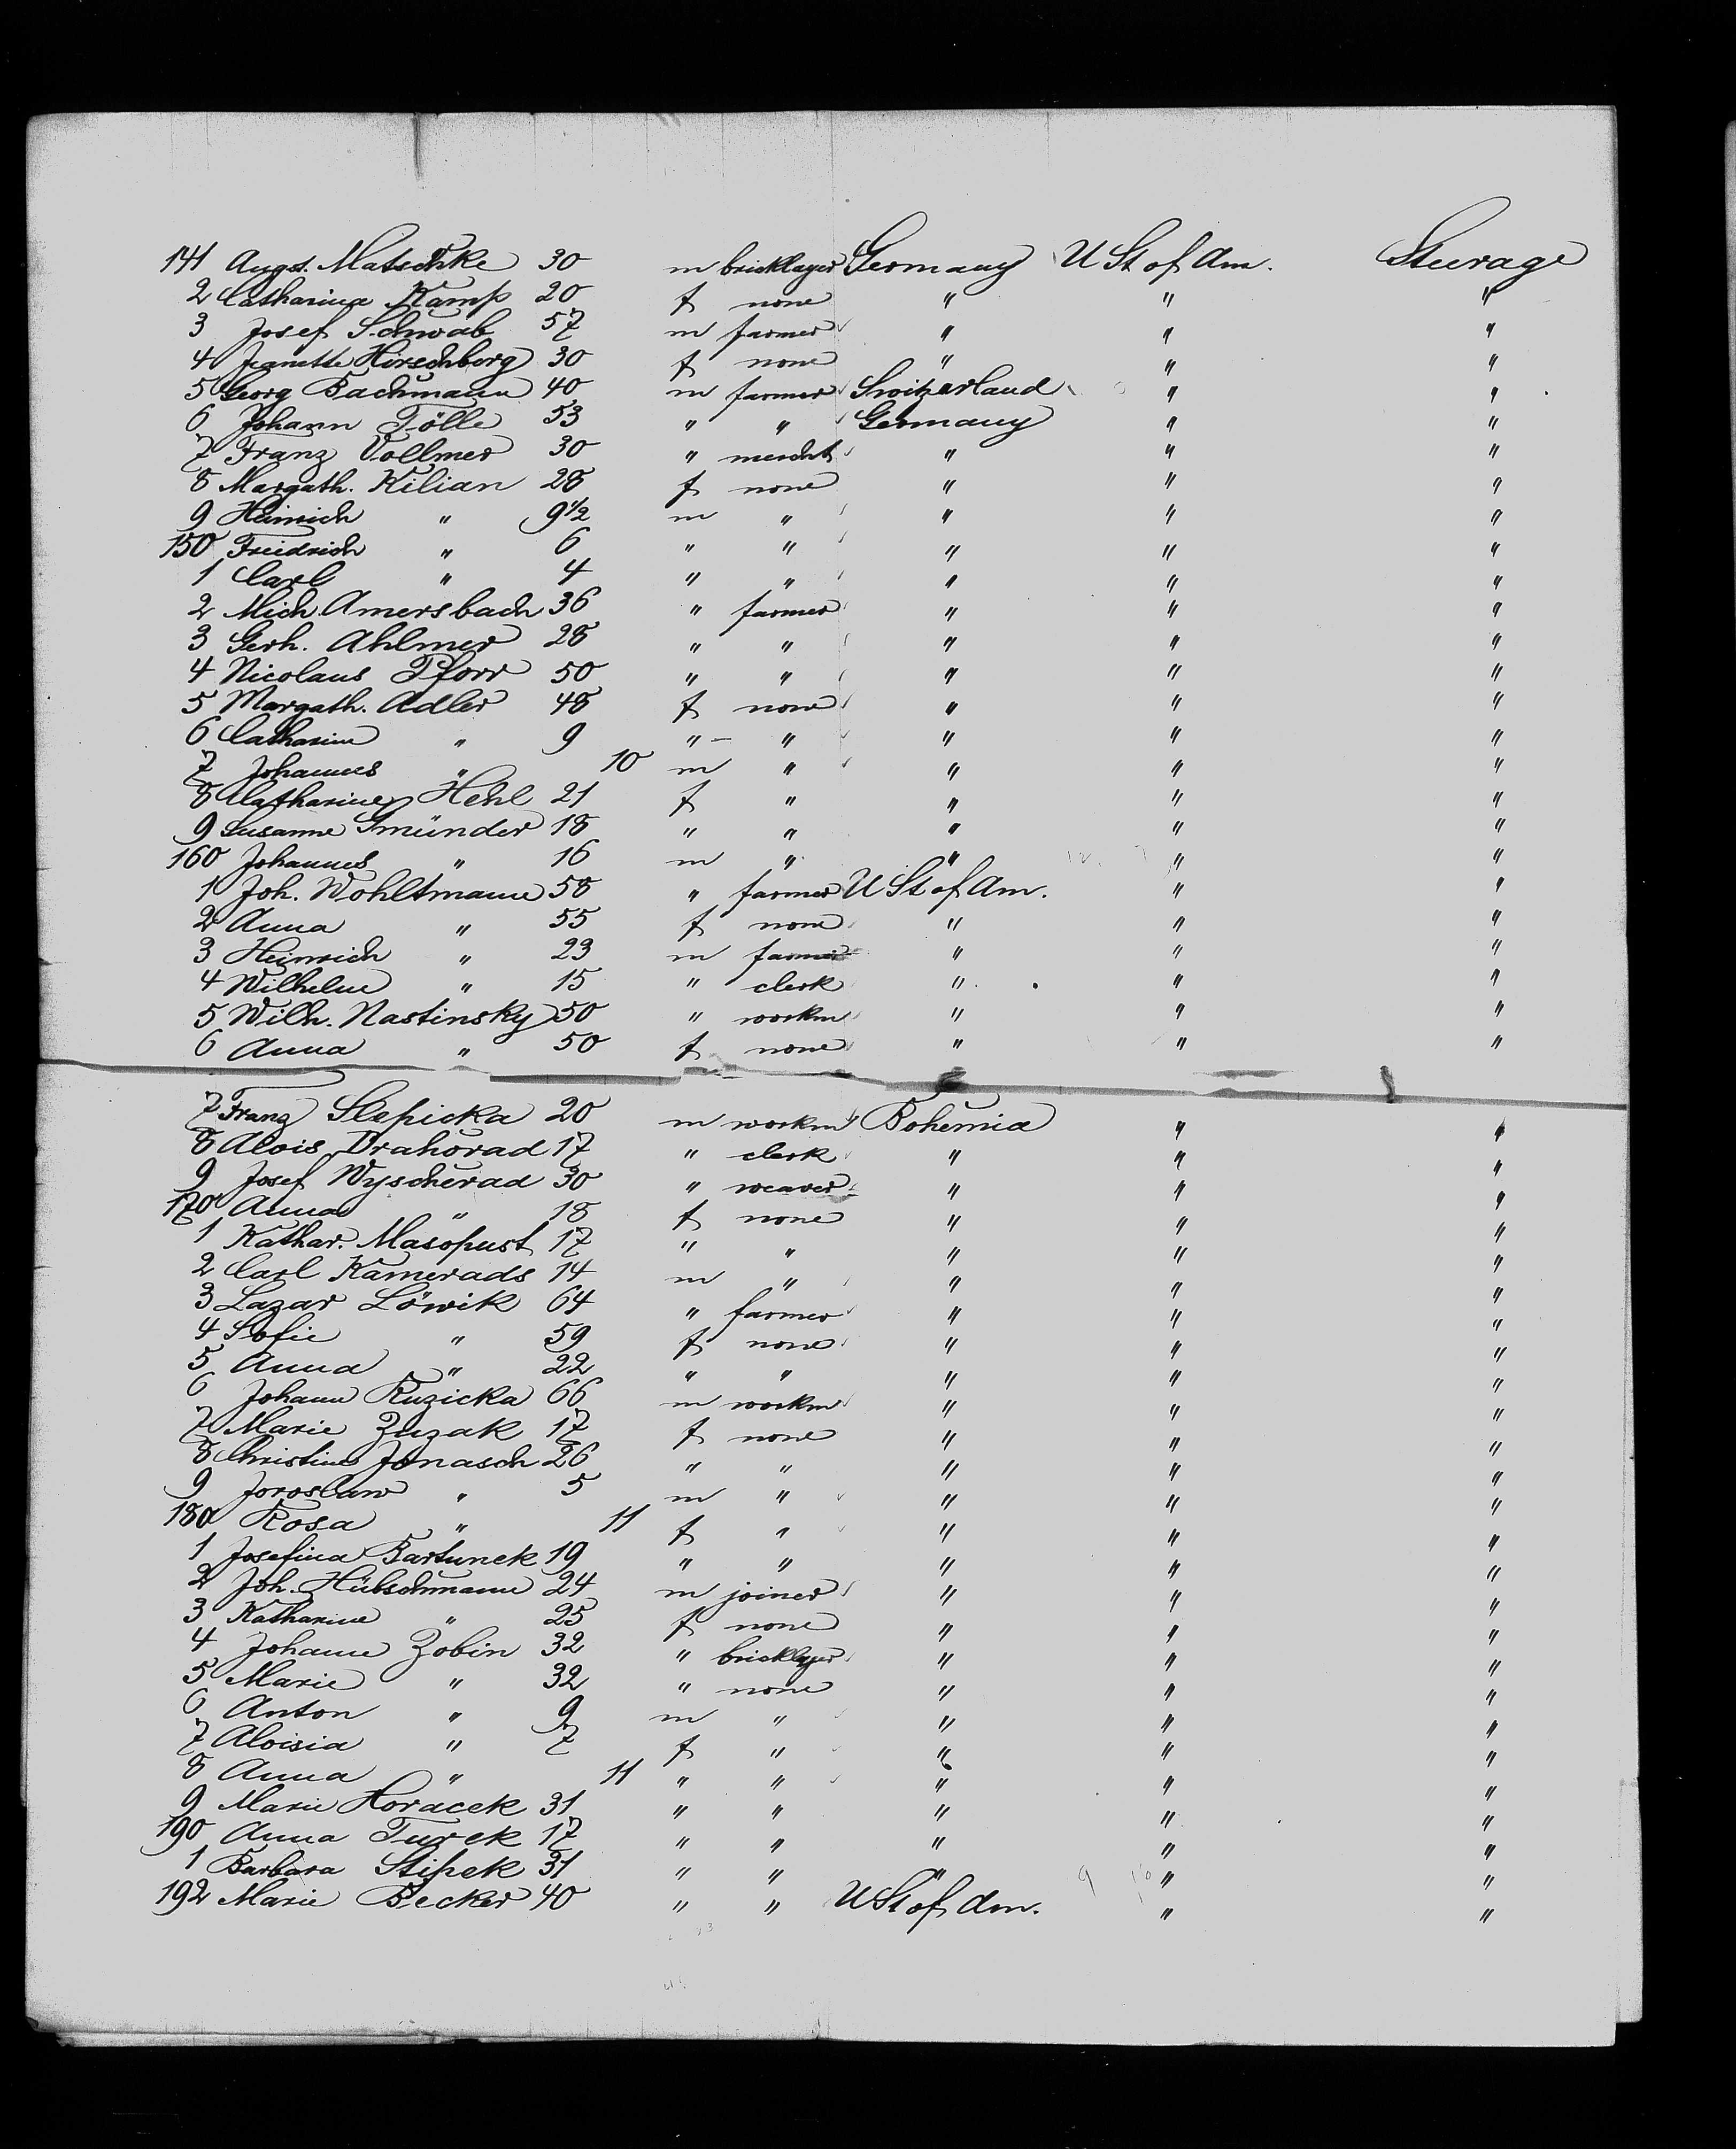 141 Augst. Matschke 30 m bricklayer Germany U St of Am. Steerage
2 Catharina Kamp 20 f none " " "
3 Josef Schwab 57 m farmer " " "
4 Jeanette Hirschberg 30 f none " " "
5 Georg Bachmann 40 m farmer Switzerland " "
6 Johann Tölle 53 " " Germany " "
7 Franz Vollmer 30 " mercht " " "
8 Margath. Kilian 28 f none " " "
9 Heinrich " 9 1/2 m " " " "
150 Friedrich " 6 " " " " "
1 Carl " 4 " " " " "
2 Mich. Amersbach 36 " farmer " " "
3 Gerh. Ahlmer 28 " " " " "
4 Nicolaus Pforr 50 " " " " "
5 Margath. Adler 48 f none " " "
6 Catharine " 9 " " " " "
7 Johannes " 10 m " " " "
8 Catharine Hehl 21 f " " " "
9 Susanne Gmünder 18 " " " " "
160 Johannes " 16 m " " " "
1 Joh. Wohltmann 58 " farmer U St of Am. " "
2 Anna " 55 f none " " "
3 Heinrich " 23 m farmer " " "
4 Wilhelm " 15 " clerk " " "
5 Wilh. Nastinsky 50 " workm " " "
6 Anna " 50 f none " " "
7 Franz Slepicka 20 m workm Bohemia " "
8 Alois Drahorad 17 " clerk " " "
9 Josef Wyscherad 30 " weaver " " "
170 Anna " 18 f none " " "
1 Kathar. Masopust 17 " " " " "
2 Carl Kamerads 14 m " " " "
3 Lazar Löwik 64 " farmer " " "
4 Sofie " 59 f none " " "
5 Anna " 22 " " " " "
6 Johann Ruzicka 66 m workm " " "
7 Marie Zuzak 17 f none " " "
8 Christine Jonasch 26 " " " " "
9 Joroslaw " 5 m " " " "
180 Rosa " 11 f " " " "
1 Josefina Bartunek 19 " " " " "
2 Joh. Hübschmann 24 m joiner " " "
3 Katharine " 25 f none " " "
4 Johann Zobin 32 " bricklayer " " "
5 Marie " 32 " none " " "
6 Anton " 9 m " " " "
7 Aloisia " 7 f " " " "
8 Anna " 11 " " " " "
9 Marie Horacek 31 " " " " "
190 Anna Turek 17 " " " " "
1 Barbara Stipek 31 " " " " "
192 Marie Becker 40 " " U St of Am. " "